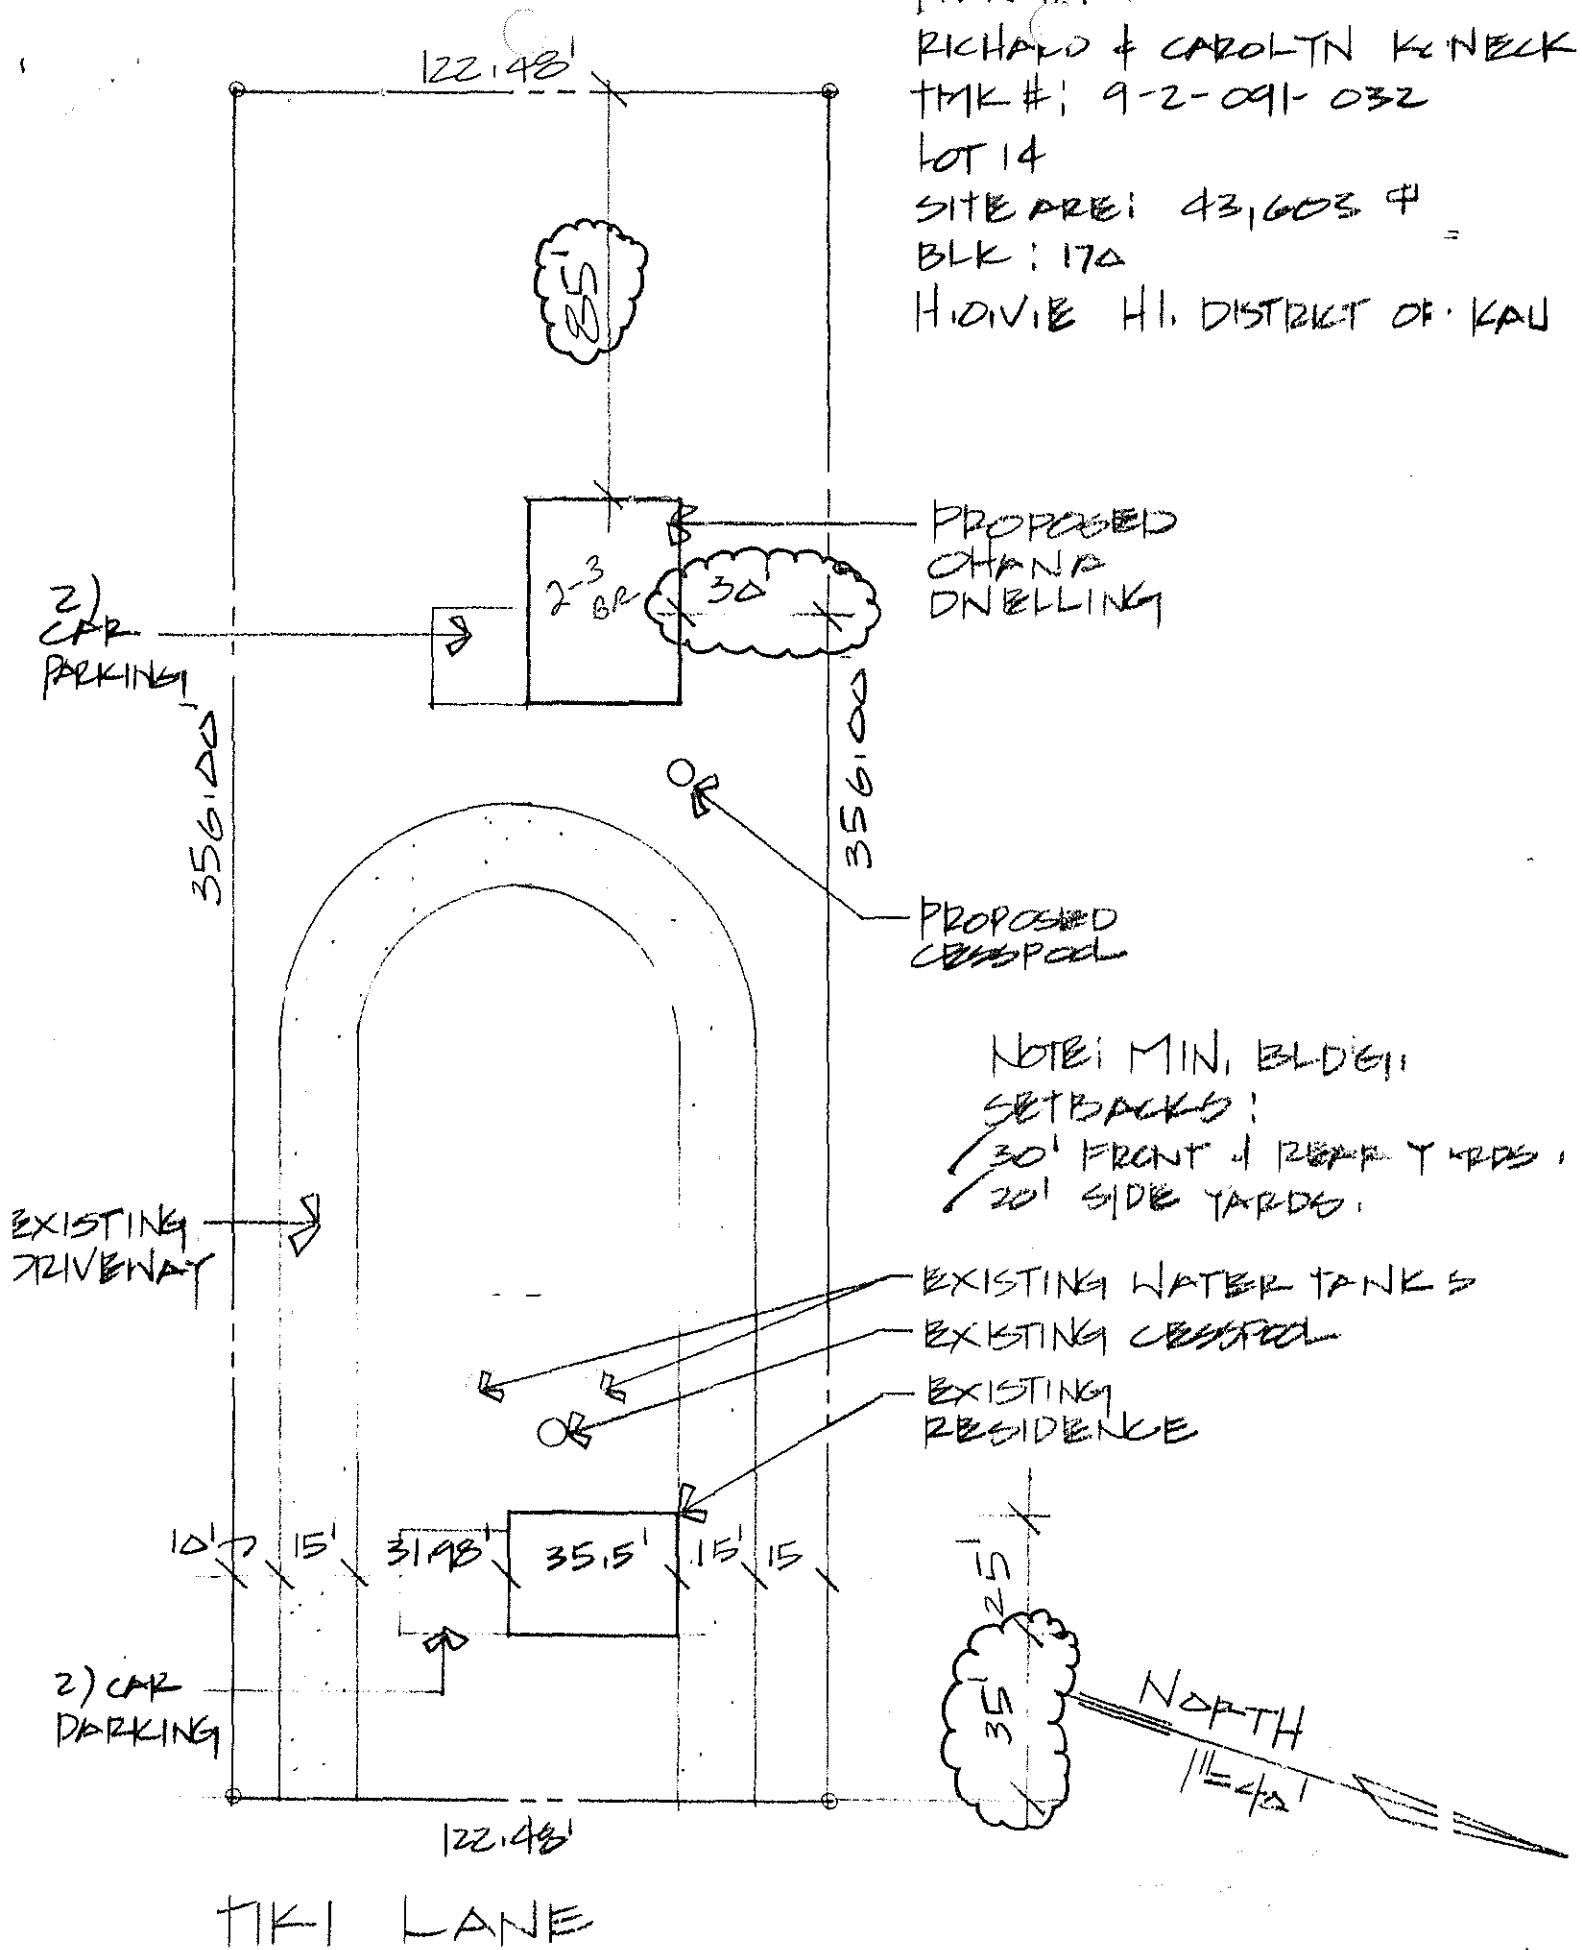 122.48'
RICHARD & CAROLYN
TMK #: 9-2-091-032
LOT 14
SITE ARE: 43,603 ⏍
BLK: 170
H.O.V.E HI. DISTRICT OF KAU
85'
PROPOSED
OHANA
DWELLING
2-3
BR
30'
2)
CAR
PARKING
356.00'
356.00
PROPOSED
CESSPOOL
NOTE: MIN. BLDG.
SETBACKS:
30' FRONT & REAR YARDS.
20' SIDE YARDS.
EXISTING
DRIVEWAY
EXISTING WATER TANKS
EXISTING CESSPOOL
EXISTING
RESIDENCE
10' 15' 31.98' 35.5' 15' 15
25'
35'
2) CAR
PARKING
NORTH
1"=40'
122.48'
TIKI LANE